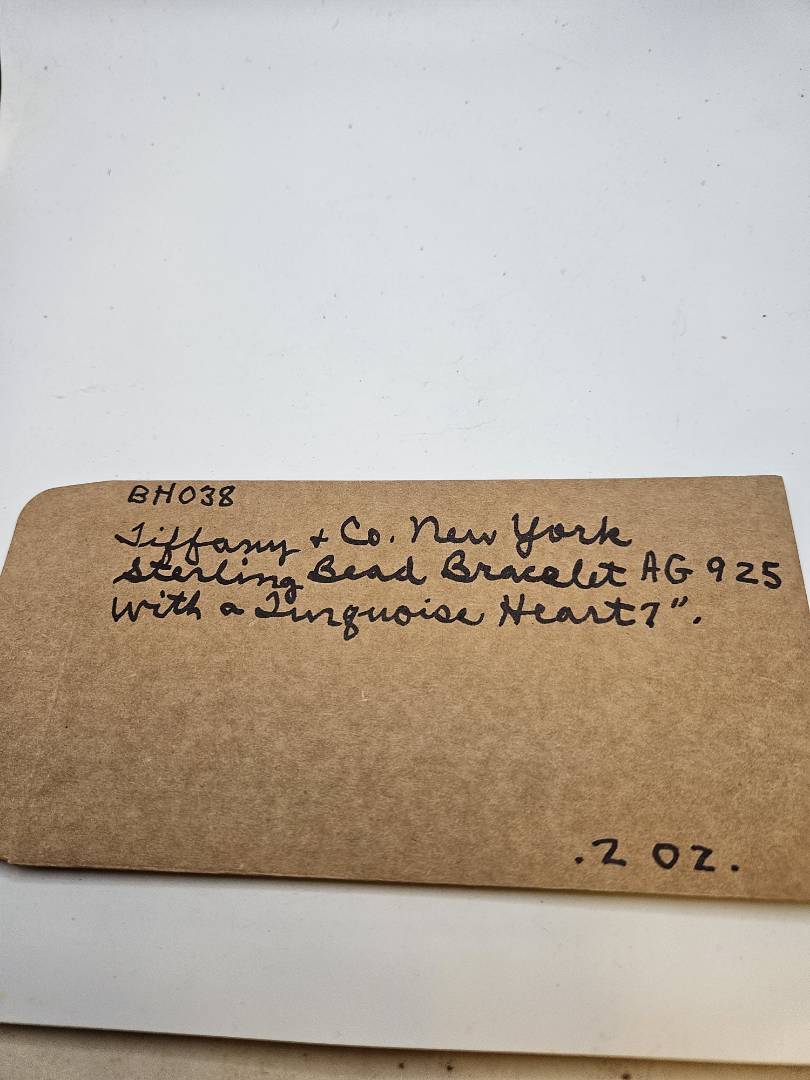 BH038
Tiffany + Co. New York
Sterling Bead Bracelet AG 925
with a Turquoise Heart 7".
.2 oz.